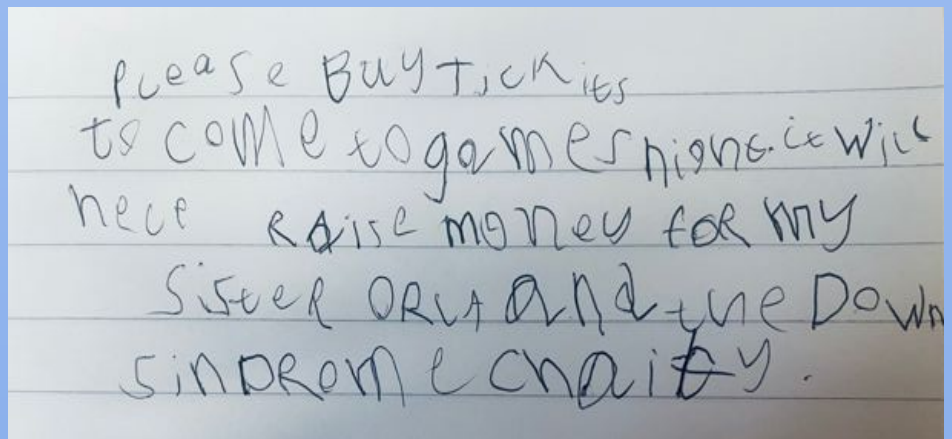 Please Buy Tickits
to come to games night. it will
help Raise money for my
Sister ORLA and the Down
SinDRome chaity.